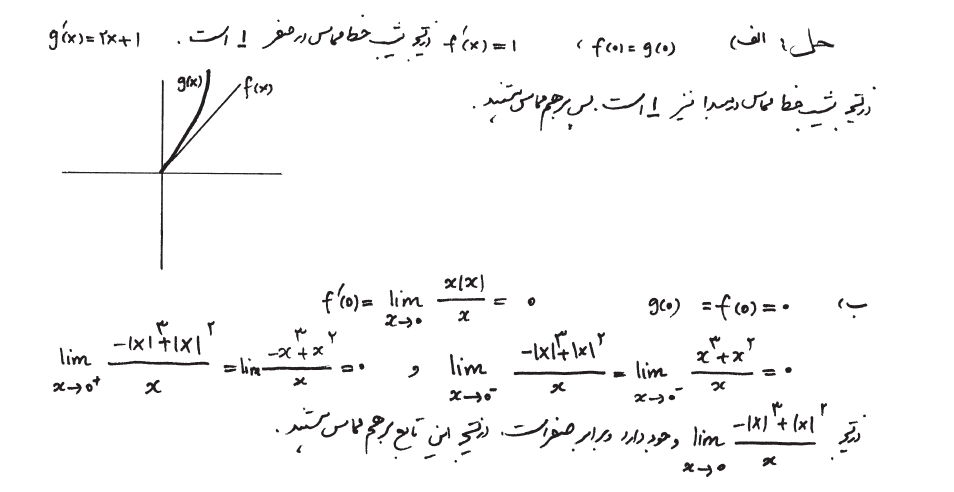 حل: الف) f(0) = g(0) ، f'(x) = 1 در نتیجه شیب خط مماس در صفر 1 است . g'(x) = ۲x + 1
در نتیجه شیب خط مماس در مبدا نیز 1 است . پس بر هم مماس هستند .
g(x) f(x)
ب) g(0) = f(0) = ۰ f'(0) = lim_{x→0} x|x| / x = ۰
lim_{x→0⁺} (-|x|^۳ + |x|^۲) / x = lim (-x^۳ + x^۲) / x = ۰ و lim_{x→0⁻} (-|x|^۳ + |x|^۲) / x = lim_{x→0⁻} (x^۳ + x^۲) / x = ۰
در نتیجه lim_{x→0} (-|x|^۳ + |x|^۲) / x وجود دارد و برابر صفر است. در نتیجه این تابع بر هم مماس هستند .